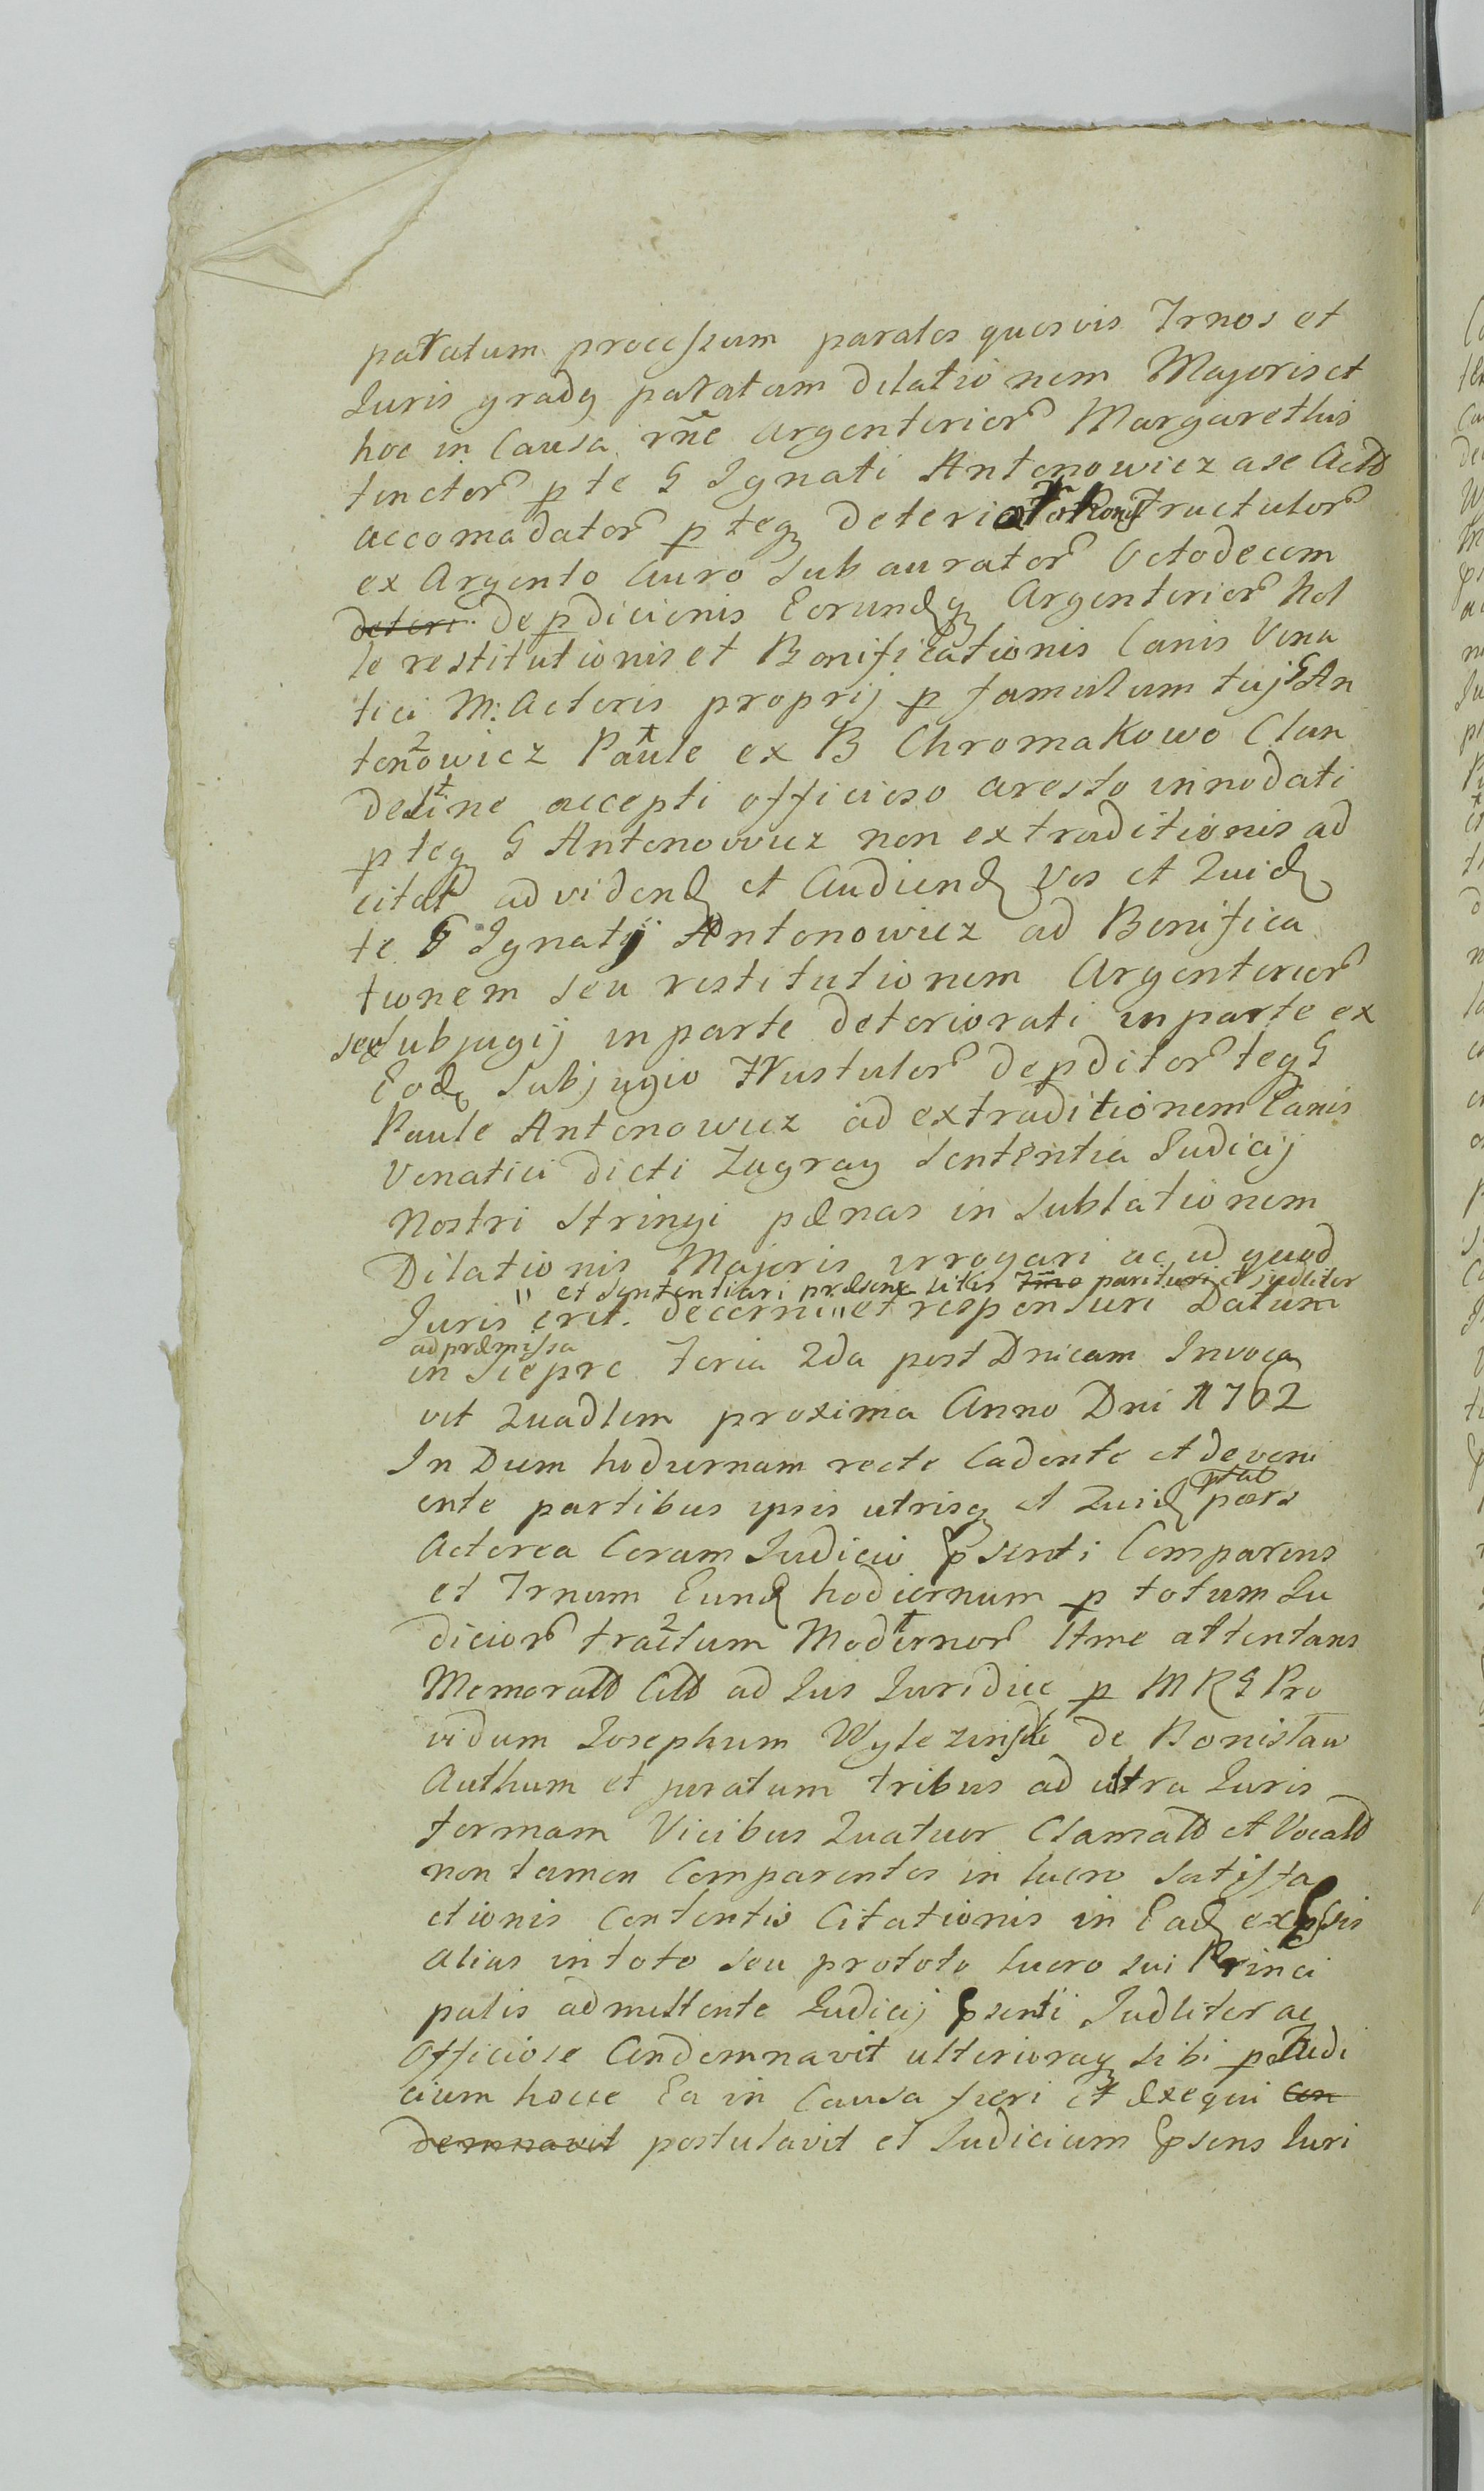 paratum processum paratos quosvis Trnos et
Iuris gradq paratam dilationem Majoris et
hoc in Causa rñe argenterior Margarethis
tinctor p te G Ignati Antonowicz a se Actt
accomadator p teq deterior
ex Argento Auro Subaurator Octodecem
deteri depdicionis Eorundq Argenterior Nol
le restitutionis et Bonificationis Canis Vena
tici M: Actoris proprij p famulum tuj G An
tonowicz Paule ex B Chromakowo Clan
destine accepti officioso aresto innodati
p teq G Antonowicz non extraditionis ad
citat ad vidend et Audiend Vos et Quid
te G Ignatij Antonowicz ad Bonifica
tionem seu restitutionem Argenterior
seu subjugij in parte deteriorati in parte ex
Eod Subjugio Frustulor depditor teq G
Paule Antonowicz ad extraditionem Canis
Venatici dicti Zagray Sententia Iudicij
Nostri Stringi pænas in Sublationem
Dilationis Majoris irrogari ac id quod
" et Sententiari præsens litis Tmo parituri et judliter
Juris erit decerni " et responsuri Datum
ad præmissa
in Siepre feria 2da post Dnicam Invoca
vit Quadlem proxima Anno Dni 1762
In Diem hodiernam recte Cadente et deveni
ente partibus ipsis utrisq et Quid ptat pars
Actorea Coram Iudicio psenti Comparens
et Trnum Eund hodiernum p totum Iu
dicior tractum Modernor ltme attentans
Memoratt Citt ad Ius Iuridice p M R G Pro
vidum Iosephum Wylezinski de Bonislaw
Authum et juratum tribus ad ultra Iuris
formam Vicibus Quatuor Clamatt et Vocatt
non tamen Comparentes in lucro Satisfa
ctionis Contentis Citationis in Ead expssis
alias in toto seu pro toto lucro sui Princi
palis admittente Iudicij psenti Iudliter ac
Officiose Condemnavit ulterioraq sibi p Iudi
cium hocce Ea in Causa fieri et exequi con
demnavit postulavit et Iudicium psens Iuri